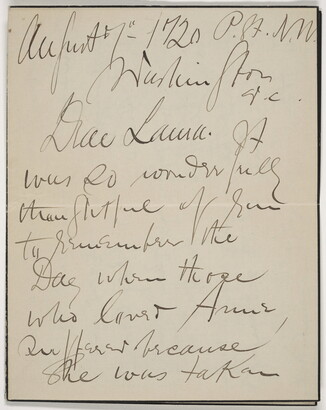 August 1st 1720 P. St. N.W.
Washington
D.C.
Dear Laura. It
was so wonderfully
thoughtful of you
to remember the
Day when those
who loved Anne,
suffered because
she was taken